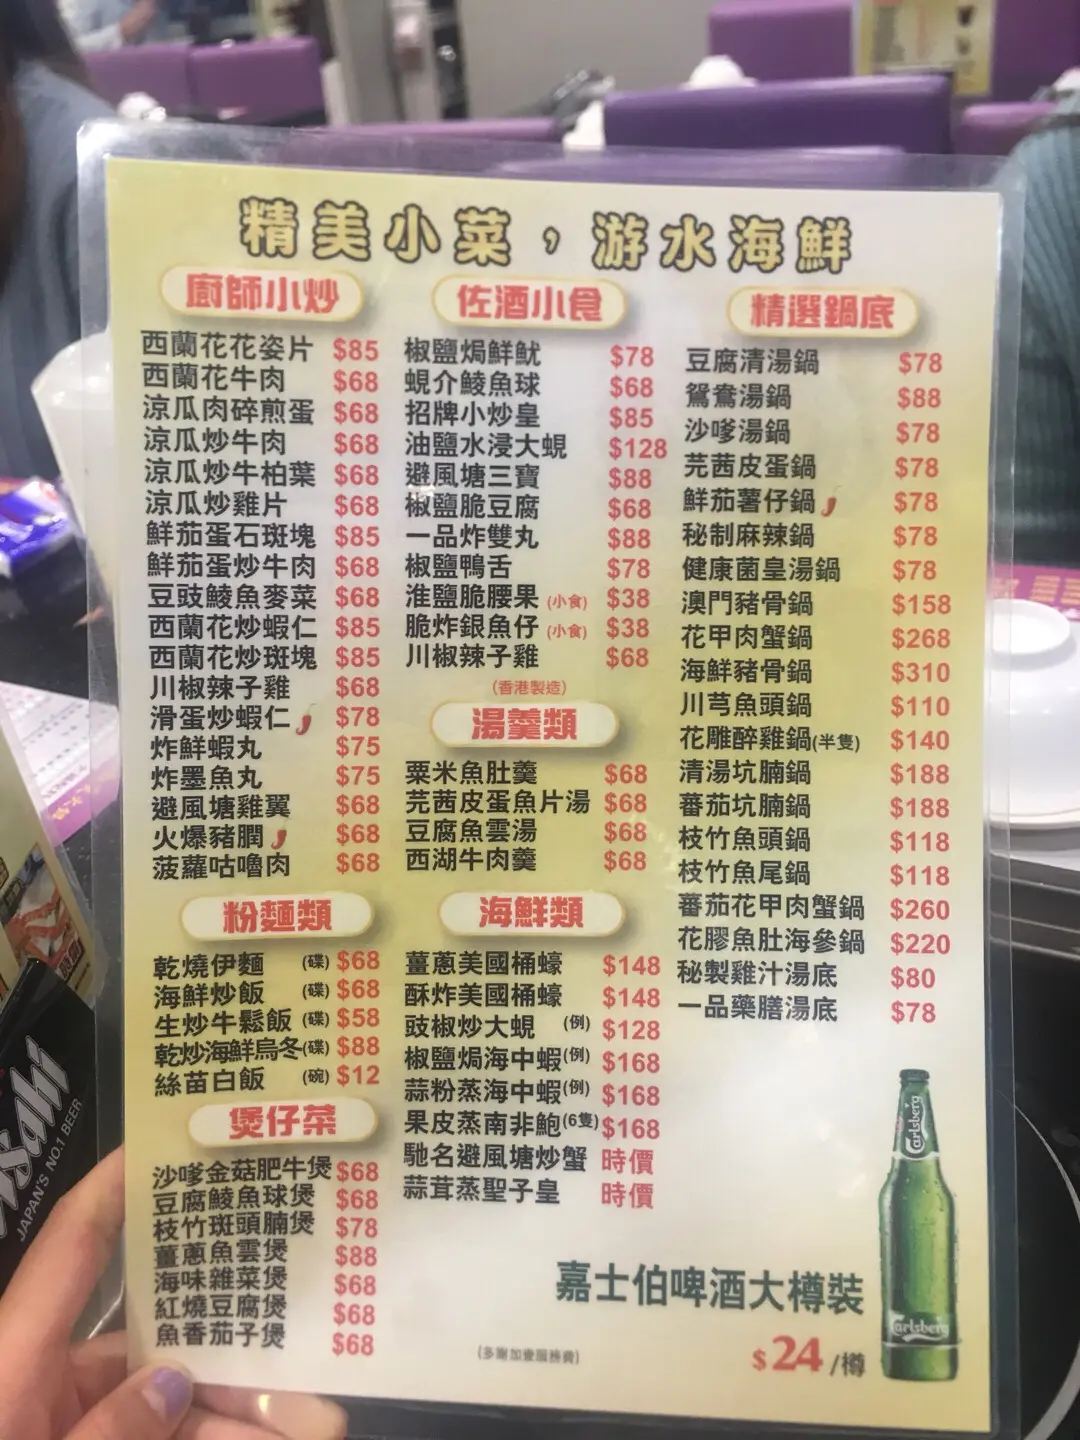 精美小菜，游水海鮮
廚師小炒
西蘭花花姿片 $85
西蘭花牛肉 $68
涼瓜肉碎煎蛋 $68
涼瓜炒牛肉 $68
涼瓜炒牛柏葉 $68
涼瓜炒雞片 $68
鮮茄蛋石斑塊 $85
鮮茄蛋炒牛肉 $68
豆豉鯪魚麥菜 $68
西蘭花炒蝦仁 $85
西蘭花炒斑塊 $85
川椒辣子雞 $68
滑蛋炒蝦仁 $78
炸鮮蝦丸 $75
炸墨魚丸 $75
避風塘雞翼 $68
火爆豬膶 $68
菠蘿咕嚕肉 $68
粉麵類
乾燒伊麵 (碟) $68
海鮮炒飯 (碟) $68
生炒牛鬆飯 (碟) $58
乾炒海鮮烏冬(碟) $88
絲苗白飯 (碗) $12
煲仔菜
沙嗲金菇肥牛煲 $68
豆腐鯪魚球煲 $68
枝竹斑頭腩煲 $78
薑蔥魚雲煲 $88
海味雜菜煲 $68
紅燒豆腐煲 $68
魚香茄子煲 $68
佐酒小食
椒鹽焗鮮魷 $78
蜆介鯪魚球 $68
招牌小炒皇 $85
油鹽水浸大蜆 $128
避風塘三寶 $88
椒鹽脆豆腐 $68
一品炸雙丸 $88
椒鹽鴨舌 $78
淮鹽脆腰果 (小食) $38
脆炸銀魚仔 (小食) $38
川椒辣子雞 $68
(香港製造)
湯羹類
粟米魚肚羹 $68
芫茜皮蛋魚片湯 $68
豆腐魚雲湯 $68
西湖牛肉羹 $68
海鮮類
薑蔥美國桶蠔 $148
酥炸美國桶蠔 $148
豉椒炒大蜆 (例) $128
椒鹽焗海中蝦(例) $168
蒜粉蒸海中蝦(例) $168
果皮蒸南非鮑(6隻) $168
馳名避風塘炒蟹 時價
蒜茸蒸聖子皇 時價
精選鍋底
豆腐清湯鍋 $78
鴛鴦湯鍋 $88
沙嗲湯鍋 $78
芫茜皮蛋鍋 $78
鮮茄薯仔鍋 $78
秘制麻辣鍋 $78
健康菌皇湯鍋 $78
澳門豬骨鍋 $158
花甲肉蟹鍋 $268
海鮮豬骨鍋 $310
川芎魚頭鍋 $110
花雕醉雞鍋(半隻) $140
清湯坑腩鍋 $188
蕃茄坑腩鍋 $188
枝竹魚頭鍋 $118
枝竹魚尾鍋 $118
蕃茄花甲肉蟹鍋 $260
花膠魚肚海參鍋 $220
秘製雞汁湯底 $80
一品藥膳湯底 $78
嘉士伯啤酒大樽裝
$24/樽
(多謝加壹服務費)
Carlsberg
Carlsberg
Asahi
JAPAN'S NO.1 BEER